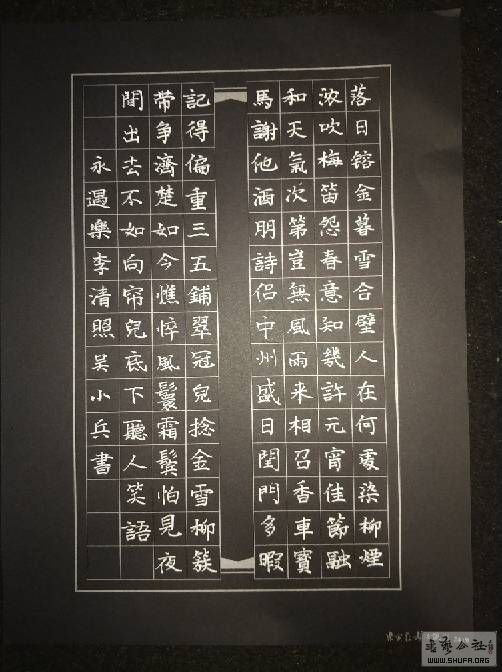 落日镕金暮雪合璧人在何處染柳煙
浓吹梅笛怨春意知幾許元宵佳節融
和天氣次第豈無風雨来相召香車寶
馬謝他酒朋詩侣中州盛日閏門多暇
記得偏重三五鋪翠冠兒捻金雪柳簇
帶爭濟楚如今憔悴風鬟霜鬢怕見夜
間出去不如向帘兒底下聽人笑語
永遇樂李清照吴小兵書
書藝公社
WWW.SHUFA.ORG